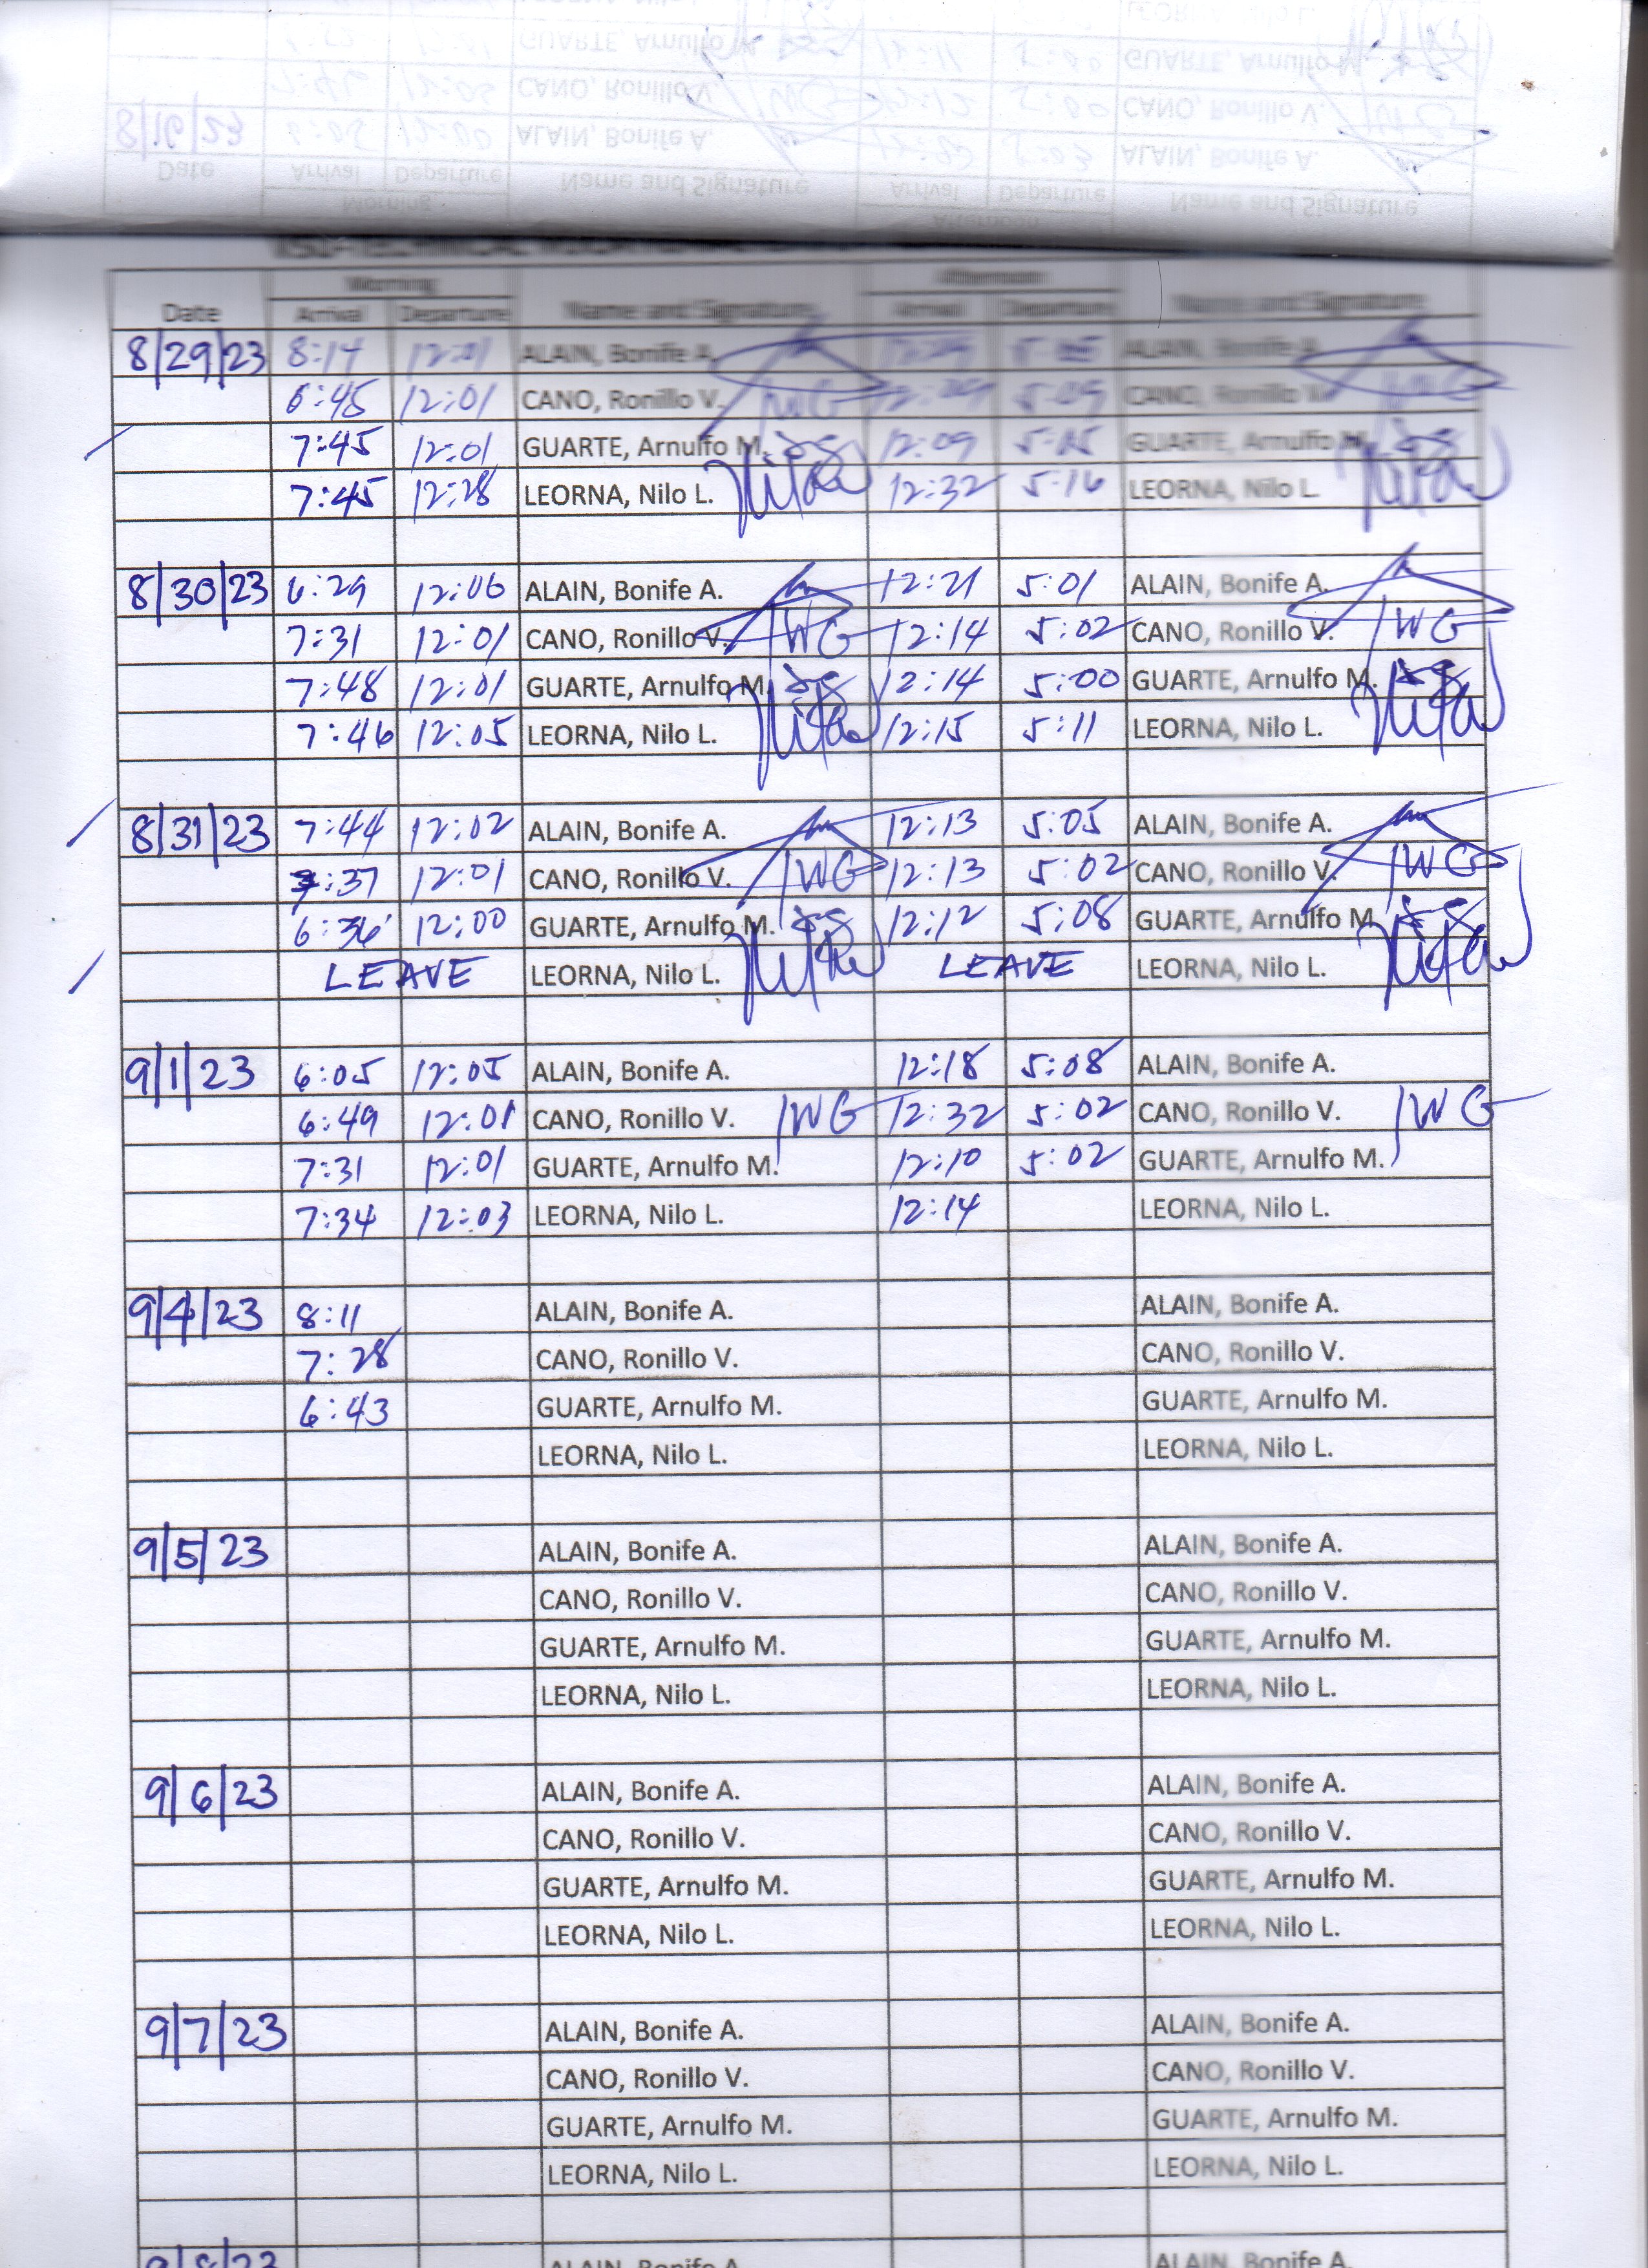 Date Arrival Departure Name and Signature Arrival Departure Name and Signature
Morning Afternoon
8/29/23 8:14 12:01 ALAIN, Bonife A. 5:05 ALAIN, Bonife A.
6:45 12:01 CANO, Ronillo V. IWG 5:09 CANO, Ronillo V. IWG
7:45 12:01 GUARTE, Arnulfo M. 12:09 5:05 GUARTE, Arnulfo M.
7:45 12:28 LEORNA, Nilo L. 12:32 5:16 LEORNA, Nilo L.
8/30/23 6:29 12:06 ALAIN, Bonife A. 12:21 5:01 ALAIN, Bonife A.
7:31 12:01 CANO, Ronillo V. IWG 12:14 5:02 CANO, Ronillo V. IWG
7:48 12:01 GUARTE, Arnulfo M. 12:14 5:00 GUARTE, Arnulfo M.
7:46 12:05 LEORNA, Nilo L. 12:15 5:11 LEORNA, Nilo L.
8/31/23 7:44 12:02 ALAIN, Bonife A. 12:13 5:05 ALAIN, Bonife A.
7:37 12:01 CANO, Ronillo V. IWG 12:13 5:02 CANO, Ronillo V. IWG
6:36 12:00 GUARTE, Arnulfo M. 12:12 5:08 GUARTE, Arnulfo M.
LEAVE LEORNA, Nilo L. LEAVE LEORNA, Nilo L.
9/1/23 6:05 12:05 ALAIN, Bonife A. 12:18 5:08 ALAIN, Bonife A.
6:49 12:01 CANO, Ronillo V. IWG 12:32 5:02 CANO, Ronillo V. IWG
7:31 12:01 GUARTE, Arnulfo M. 12:10 5:02 GUARTE, Arnulfo M.
7:34 12:03 LEORNA, Nilo L. 12:14 LEORNA, Nilo L.
9/4/23 8:11 ALAIN, Bonife A. ALAIN, Bonife A.
7:28 CANO, Ronillo V. CANO, Ronillo V.
6:43 GUARTE, Arnulfo M. GUARTE, Arnulfo M.
LEORNA, Nilo L. LEORNA, Nilo L.
9/5/23 ALAIN, Bonife A. ALAIN, Bonife A.
CANO, Ronillo V. CANO, Ronillo V.
GUARTE, Arnulfo M. GUARTE, Arnulfo M.
LEORNA, Nilo L. LEORNA, Nilo L.
9/6/23 ALAIN, Bonife A. ALAIN, Bonife A.
CANO, Ronillo V. CANO, Ronillo V.
GUARTE, Arnulfo M. GUARTE, Arnulfo M.
LEORNA, Nilo L. LEORNA, Nilo L.
9/7/23 ALAIN, Bonife A. ALAIN, Bonife A.
CANO, Ronillo V. CANO, Ronillo V.
GUARTE, Arnulfo M. GUARTE, Arnulfo M.
LEORNA, Nilo L. LEORNA, Nilo L.
9/8/23 ALAIN, Bonife A. ALAIN, Bonife A.